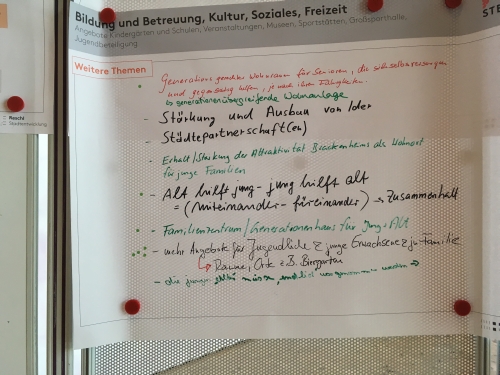 Bildung und Betreuung, Kultur, Soziales, Freizeit
Angebote Kindergärten und Schulen, Veranstaltungen, Museen, Sportstätten, Großsporthalle,
Jugendbeteiligung
STE
Weitere Themen
Generationsgerechter Wohnraum für Senioren, die sich selbst versorgen
und gegenseitig helfen, je nach ihren Fähigkeiten
↳ generationenübergreifende Wohnanlage
- Störkung und Ausbau von/der
Städtepartnerschaft(en)
- Erhalt/Stärkung der Attraktivität Brackenheims als Wohnort
für junge Familien
- Alt hilft jung - jung hilft alt
= (miteinander - füreinander) → Zusammenhalt
- Familienzentrum/Generationenhaus für Jung + Alt
- mehr Angebote für Jugendliche & junge Erwachsene & ju. Familie
↳ Räume, Orte z.B. Biergarten
- die junge müssen, endlich werden →
Reschl
Stadtentwicklung